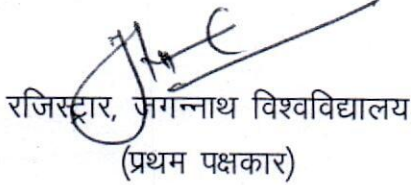 रजिस्ट्रार, जगन्नाथ विश्वविद्यालय
(प्रथम पक्षकार)